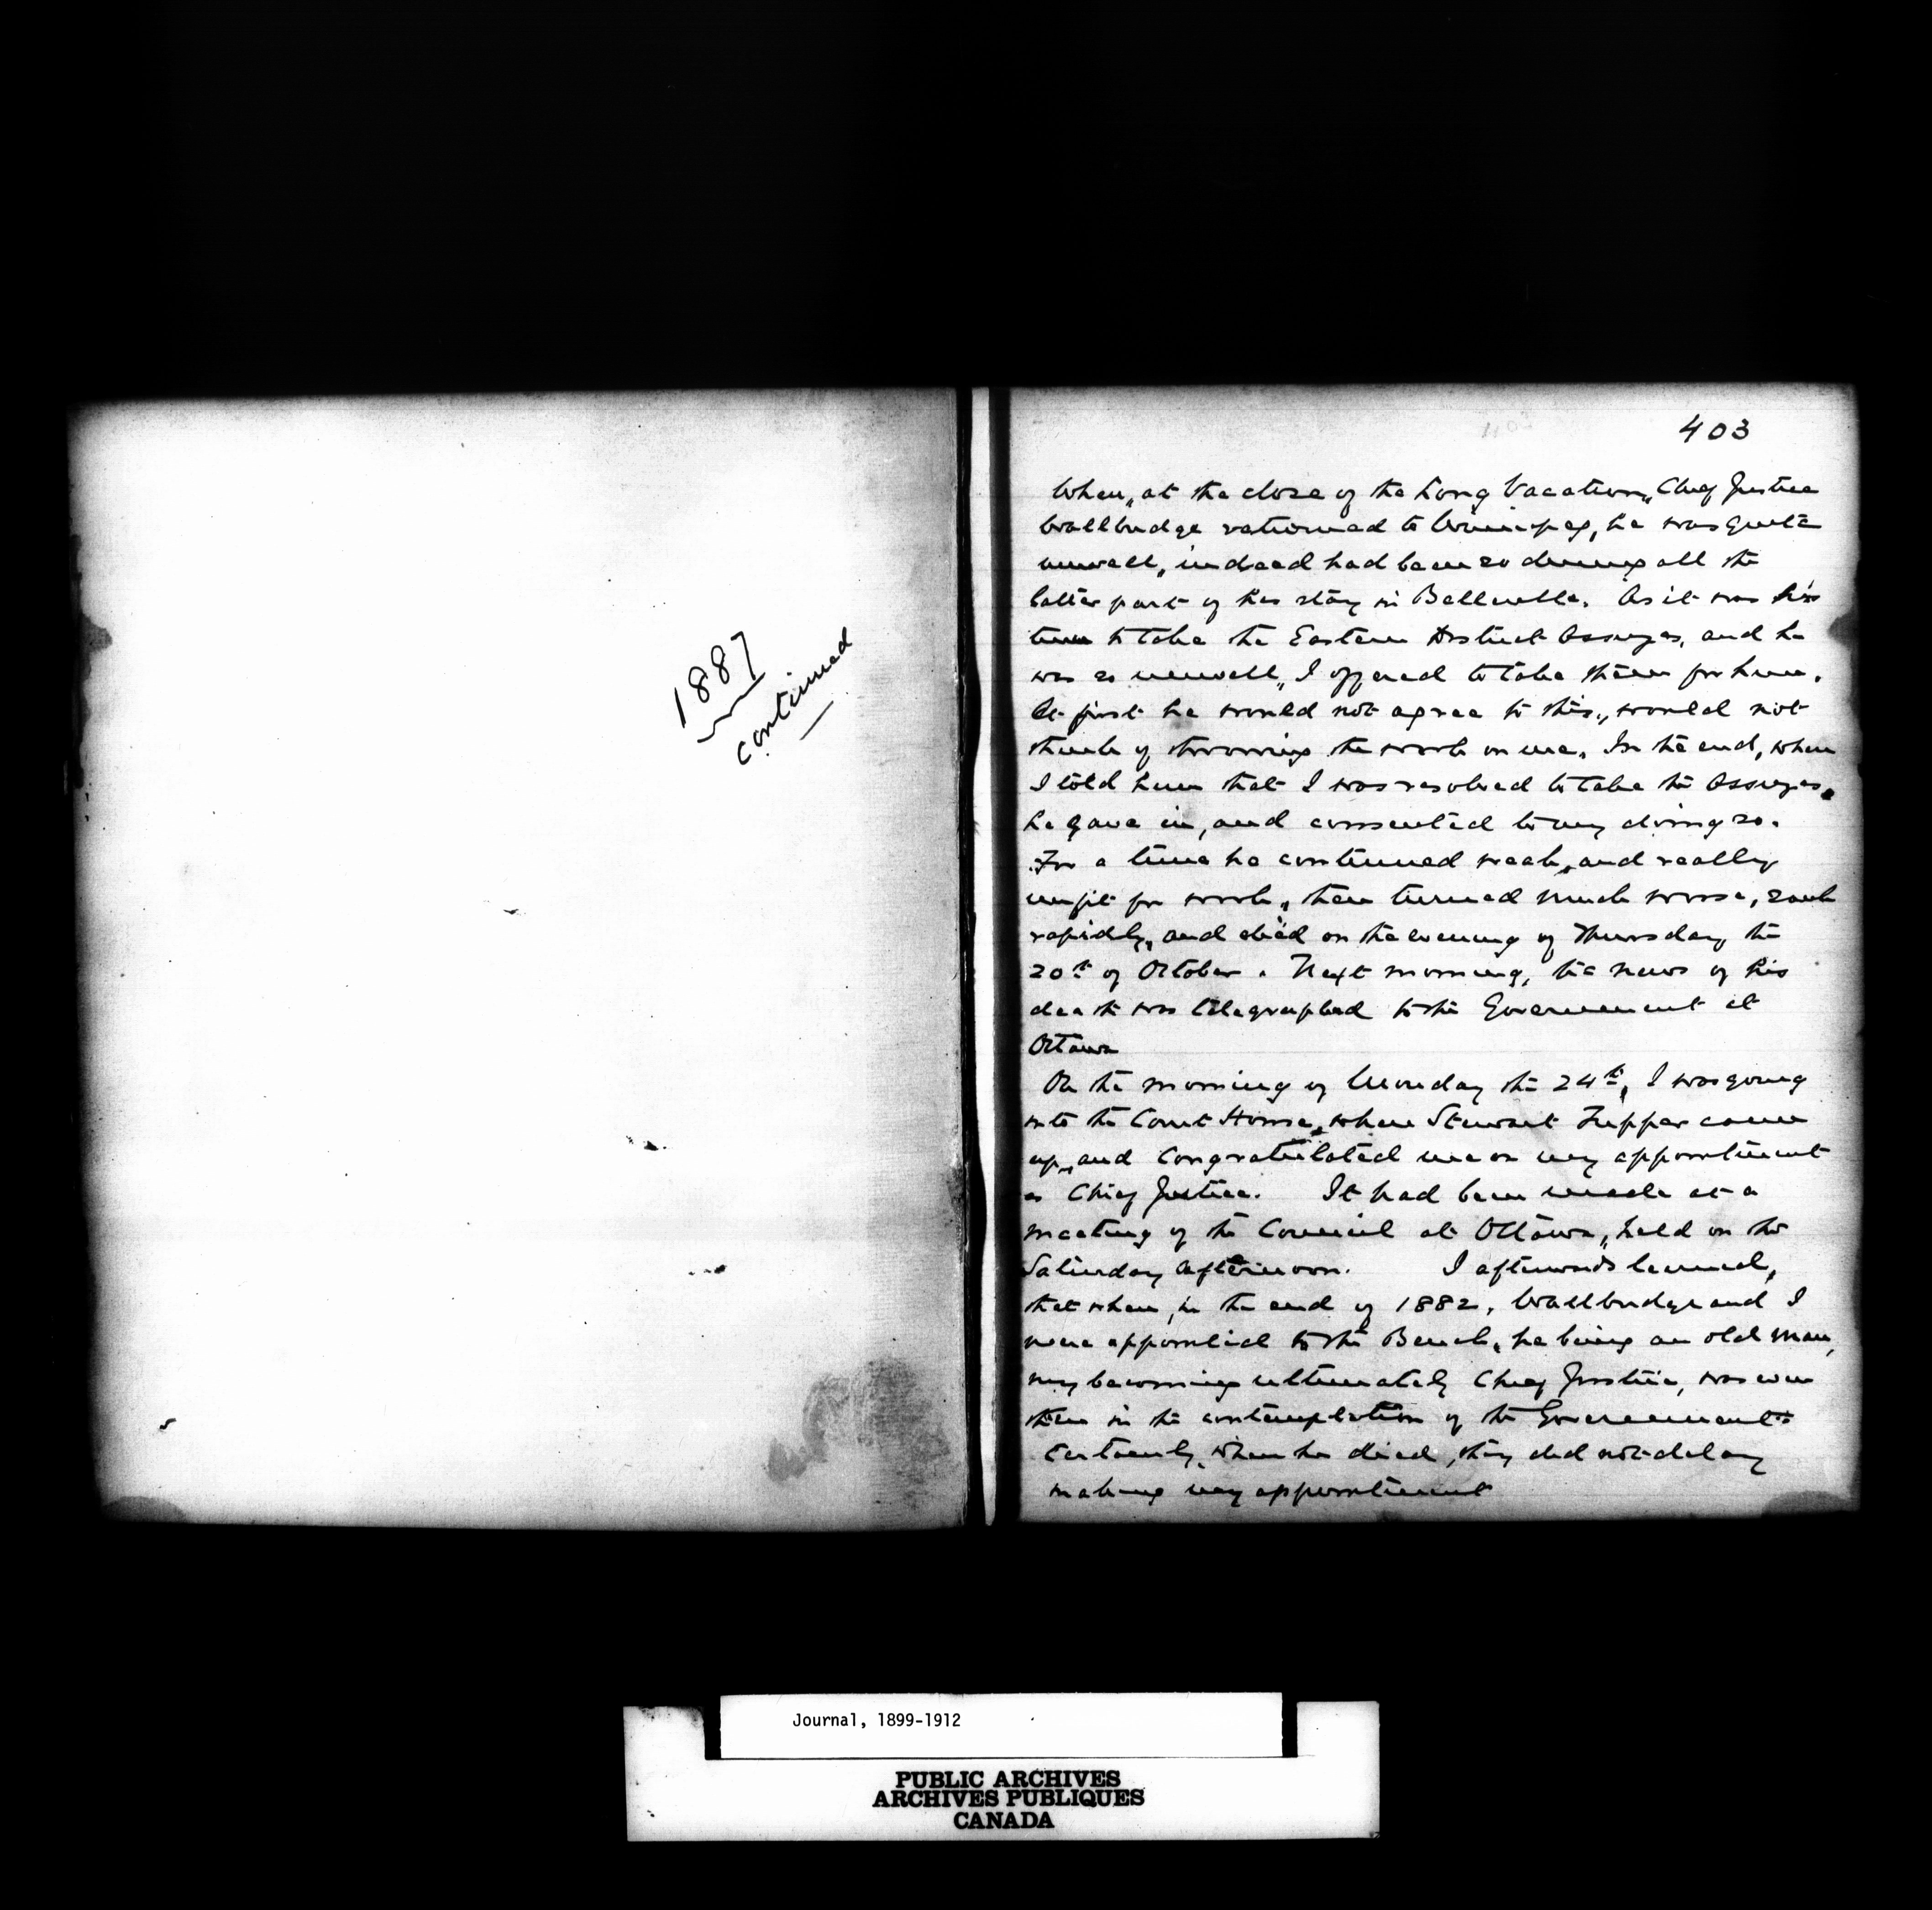 1887
continued
403
When, at the close of the Long Vacation, Chief Justice
Wallbridge returned to Winnipeg, he was quite
unwell, indeed had been so during all the
latter part of his stay in Belleville. As it was his
turn to take the Eastern District Assizes, and he
was so unwell, I offered to take them for him.
At first he would not agree to this, would not
think of throwing the work on me. In the end, when
I told him that I was resolved to take the Assizes,
he gave in, and consented to my doing so.
For a time he continued weak, and really
unfit for work, then turned much worse, sank
rapidly, and died on the evening of Thursday the
20th of October. Next morning, the news of his
death was telegraphed to the Government at
Ottawa
On the morning of Monday the 24th, I was going
into the Court House, when Stewart Tupper came
up, and congratulated me on my appointment
as Chief Justice. It had been made at a
meeting of the Council at Ottawa, held on the
Saturday afternoon. I afterwards learned,
that when, in the end of 1882, Wallbridge and I
were appointed to the Bench, he being an old man,
my becoming ultimately Chief Justice, was even
then in the contemplation of the Government.
Certainly, when he died, they did not delay
making my appointment
Journal, 1899-1912
PUBLIC ARCHIVES
ARCHIVES PUBLIQUES
CANADA